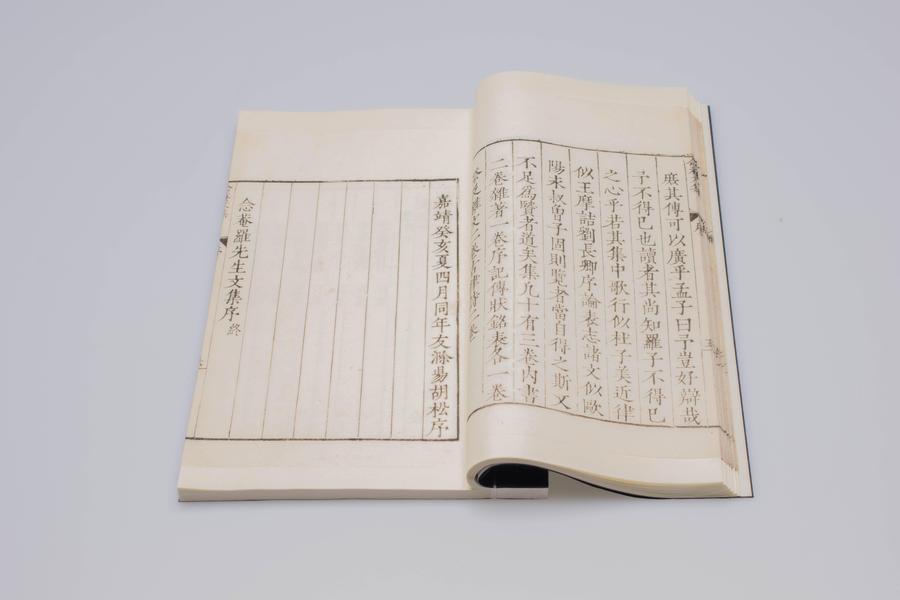 廢其傳可以廣乎孟子曰予豈好辯哉
予不得已也讀者其尚知羅子不得已
之心乎若其集中歌行似杜子美近律
似王摩詰劉長卿序論表志諸文似歐
陽永叔曾子固則覽者當自得之斯又
不足爲賢者道矣集凡十有三卷内書
二卷雜著一卷序記傳狀銘表各一卷
嘉靖癸亥夏四月同年友滁昜胡松序
念菴羅先生文集序終